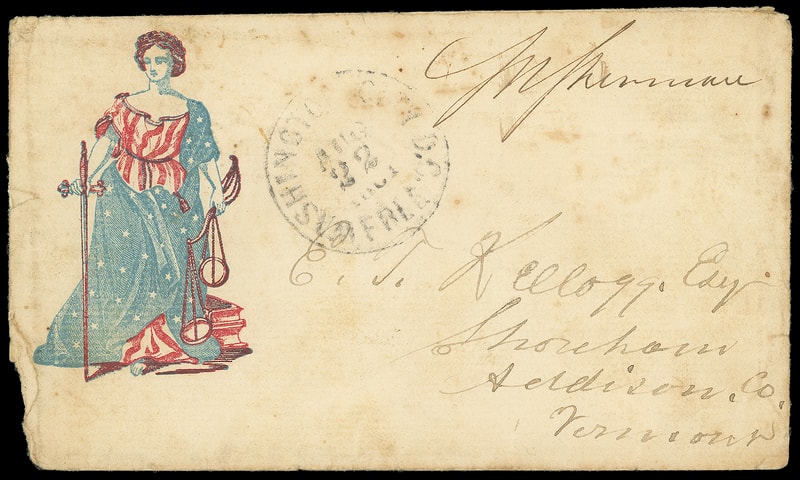 WASHINGTON CITY D.C.
AUG
22
1861
FREE
E. T. Kellogg. Esq
Shoreham
Addison. Co.
Vermont